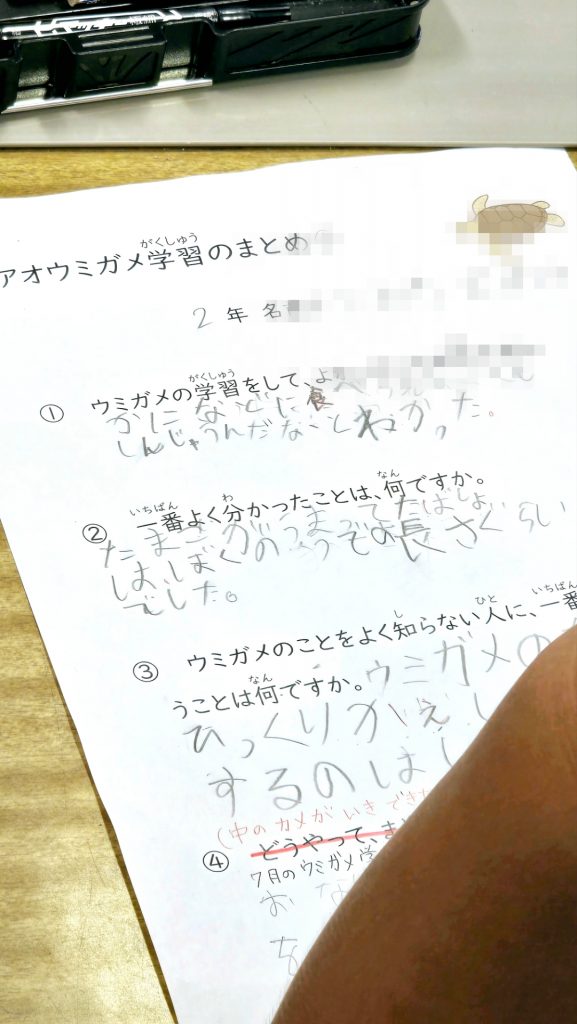 アオウミガメ学習のまとめ
がくしゅう
2年 名
① ウミガメの学習をして、よ
がくしゅう
かになどに食
しんじゃうんだなとわかった。
② 一番よく分かったことは、何ですか。
いちばん わ なん
たまごがうまってたばしょ
は、ぼくのうでの長さぐらい
でした。
③ ウミガメのことをよく知らない人に、一番
し ひと いちばん
うことは何ですか。
なん
ウミガメの
ひっくりかえし
するのは
(中のカメがいきでき
④ どうやって、ま
7月のウミガメ学
お
を